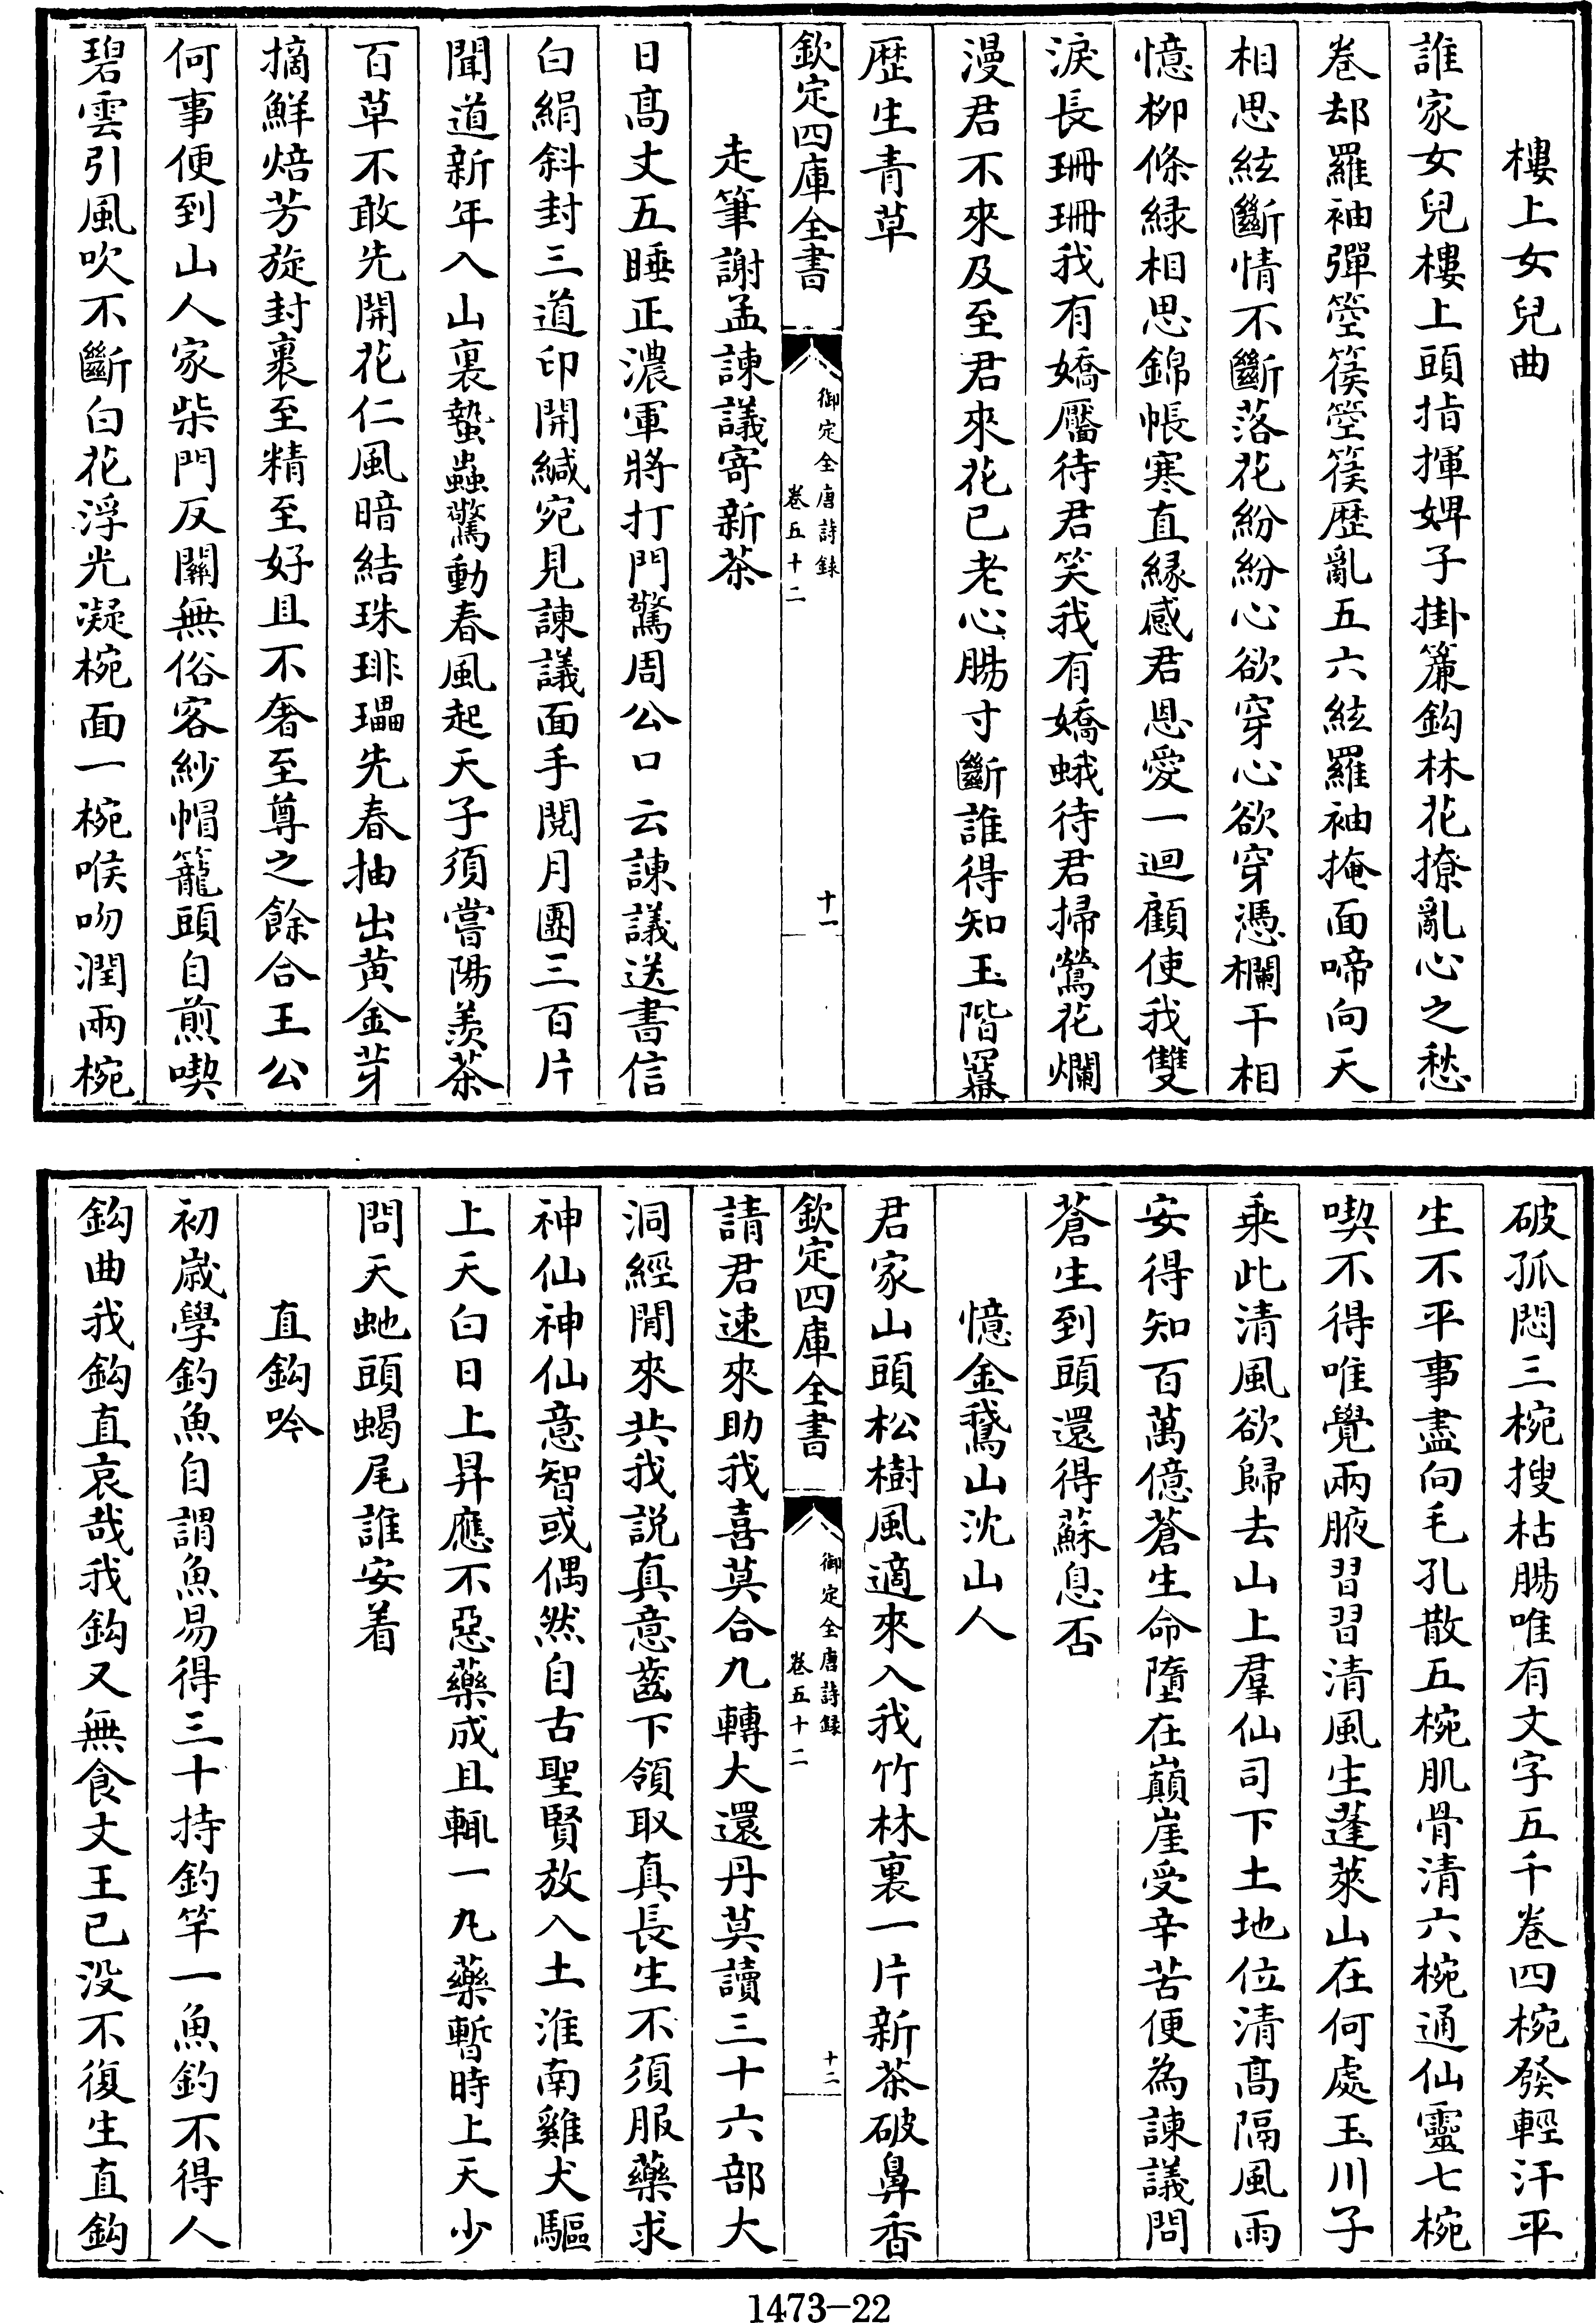 樓上女兒曲
誰家女兒樓上頭指揮婢子掛簾鈎林花撩亂心之愁
卷却羅袖彈箜篌箜篌歷亂五六絃羅袖掩面啼向天
相思絃斷情不斷落花紛紛心欲穿心欲穿憑欄干相
憶柳條緑相思錦帳寒直縁感君恩愛一迴顧使我雙
淚長珊珊我有嬌靨待君笑我有嬌蛾待君掃鶯花爛
漫君不來及至君來花已老心腸寸斷誰得知玉階羃
歷生青草
欽定四庫全書
御定全唐詩錄
卷五十二
十一
走筆謝孟諫議寄新茶
日高丈五睡正濃軍將打門驚周公口云諫議送書信
白絹斜封三道印開緘宛見諫議面手閱月團三百片
聞道新年入山裏蟄蟲驚動春風起天子須嘗陽羨茶
百草不敢先開花仁風暗結珠琲瓃先春抽出黄金芽
摘鮮焙芳旋封裹至精至好且不奢至尊之餘合王公
何事便到山人家柴門反關無俗客紗帽籠頭自煎喫
碧雲引風吹不斷白花浮光凝椀面一椀喉吻潤兩椀
破孤悶三椀搜枯腸唯有文字五千卷四椀發輕汗平
生不平事盡向毛孔散五椀肌骨清六椀通仙靈七椀
喫不得唯覺兩腋習習清風生蓬萊山在何處玉川子
乘此清風欲歸去山上羣仙司下土地位清高隔風雨
安得知百萬億蒼生命墮在巔崖受辛苦便為諫議問
蒼生到頭還得蘇息否
憶金鵞山沈山人
君家山頭松樹風適來入我竹林裏一片新茶破鼻香
欽定四庫全書
御定全唐詩録
卷五十二
十二
請君速來助我喜莫合九轉大還丹莫讀三十六部大
洞經閒來共我説真意齒下領取真長生不須服藥求
神仙神仙意智或偶然自古聖賢放入土淮南雞犬驅
上天白日上昇應不惡藥成且輒一丸藥暫時上天少
問天虵頭蝎尾誰安着
直鈎吟
初嵗學釣魚自謂魚易得三十持釣竿一魚釣不得人
鈎曲我鈎直哀哉我鈎又無食文王已没不復生直鈎
1473-22